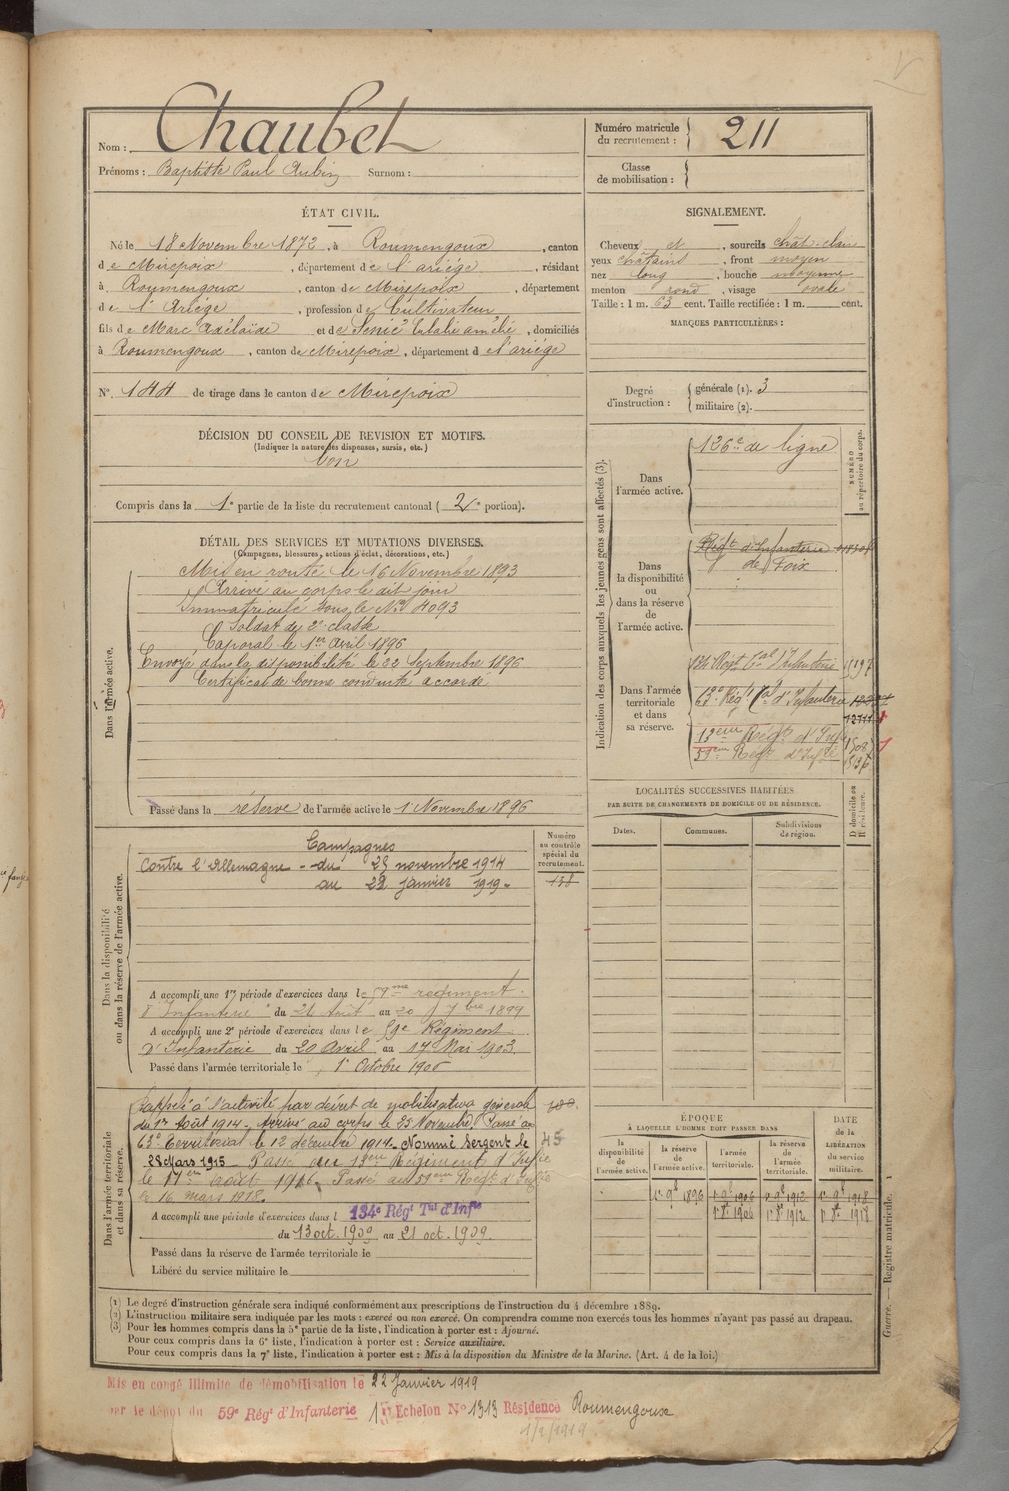 Nom : Chaubet
Prénoms : Baptiste Paul Aubin Surnom :
Numéro matricule du recrutement : 211
Classe de mobilisation :
ÉTAT CIVIL.
Né le 18 Novembre 1872, à Roumengoux, canton
de Mirepoix, département de l'ariége, résidant
à Roumengoux, canton de Mirepoix, département
de l'Ariége, profession de Cultivateur
fils de Marc Adélaïde et de Senié Eulalie amélie, domiciliés
à Roumengoux, canton de Mirepoix, département d el'ariége
N° 144 de tirage dans le canton de Mirepoix
SIGNALEMENT.
Cheveux et, sourcils chât-clair
yeux châtains, front moyen
nez long, bouche moyenne
menton rond, visage ovale
Taille : 1 m. 63 cent. Taille rectifiée : 1 m. cent.
MARQUES PARTICULIÈRES :
Degré d'instruction :
générale (1). 3
militaire (2).
DÉCISION DU CONSEIL DE REVISION ET MOTIFS.
(Indiquer la nature des dispenses, sursis, etc.)
bon
Compris dans la 1e partie de la liste du recrutement cantonal (2e portion).
DÉTAIL DES SERVICES ET MUTATIONS DIVERSES.
(Campagnes, blessures, actions d'éclat, décorations, etc.)
Dans l'armée active.
Mis en route le 16 Novembre 1893
Arrivé au corps le dit jour
Immatriculé sous le N° 4093
Soldat de 2e classe
Caporal le 1er Avril 1896
Envoyé dans la disponibilité le 22 Septembre 1896
Certificat de bonne conduite accordé
Passé dans la réserve de l'armée active le 1 Novembre 1896
Indication des corps auxquels les jeunes gens sont affectés (3).
NUMÉRO au répertoire du corps.
Dans l'armée active.
126e de ligne
Dans la disponibilité ou dans la réserve de l'armée active.
Régt d'Infanterie
de Foix
Dans l'armée territoriale et dans sa réserve.
134 Régt tal d'Infanterie
63e Régt tal d'Infanterie
13eme Régt d'Infie
59eme Regt d'Infie
LOCALITÉS SUCCESSIVES HABITÉES
PAR SUITE DE CHANGEMENTS DE DOMICILE OU DE RÉSIDENCE.
Dates. Communes. Subdivisions de région. D domicile ou R résidence.
Dans la disponibilité ou dans la réserve de l'armée active.
Numéro au contrôle spécial du recrutement.
138
Campagnes
Contre l'Allemagne - du 25 novembre 1914
au 22 janvier 1919.
A accompli une 1re période d'exercices dans le 59me regiment
d'Infanterie du 24 Août au 20 7bre 1899
A accompli une 2e période d'exercices dans le 59e Régiment
d'Infanterie du 20 Avril au 17 Mai 1903.
Passé dans l'armée territoriale le 1r Octobre 1906
Dans l'armée territoriale et dans sa réserve.
Rappelé à l'activité par décret de mobilisation générale
du 1er Août 1914. Arrivé au corps le 25 Novembre. Passé au
63e territorial le 12 décembre 1914. Nommé Sergent le
28 Mars 1915 - Passé au 13eme Régiment d'Infie
le 17 août 1916. Passé au 59eme Regt d'Infie
le 16 mars 1918.
A accompli une période d'exercices dans l 134e Régt Tal d'Infie
du 13 oct. 1909 au 21 oct. 1909.
Passé dans la réserve de l'armée territoriale le
Libéré du service militaire le
ÉPOQUE
À LAQUELLE L'HOMME DOIT PASSER DANS
la disponibilité de l'armée active. la réserve de l'armée active. l'armée territoriale. la réserve de l'armée territoriale. DATE de la LIBÉRATION du service militaire.
1r 9b 1896 1r 9b 1906 1r 9b 1912 1r 9b 1918
1r 8b 1906 1r 8b 1912 1r 8b 1918
Guerre. — Registre matricule. 1
(1) Le degré d'instruction générale sera indiqué conformément aux prescriptions de l'instruction du 4 décembre 1889.
(2) L'instruction militaire sera indiquée par les mots : exercé ou non exercé. On comprendra comme non exercés tous les hommes n'ayant pas passé au drapeau.
(3) Pour les hommes compris dans la 5e partie de la liste, l'indication à porter est : Ajourné.
Pour ceux compris dans la 6e liste, l'indication à porter est : Service auxiliaire.
Pour ceux compris dans la 7e liste, l'indication à porter est : Mis à la disposition du Ministre de la Marine. (Art. 4 de la loi.)
Mis en congé illimité de démobilisation le 22 Janvier 1919
par le dépôt du 59e Régt d'Infanterie 1r Echelon N° 1313 Résidence Roumengoux
1/2/1919